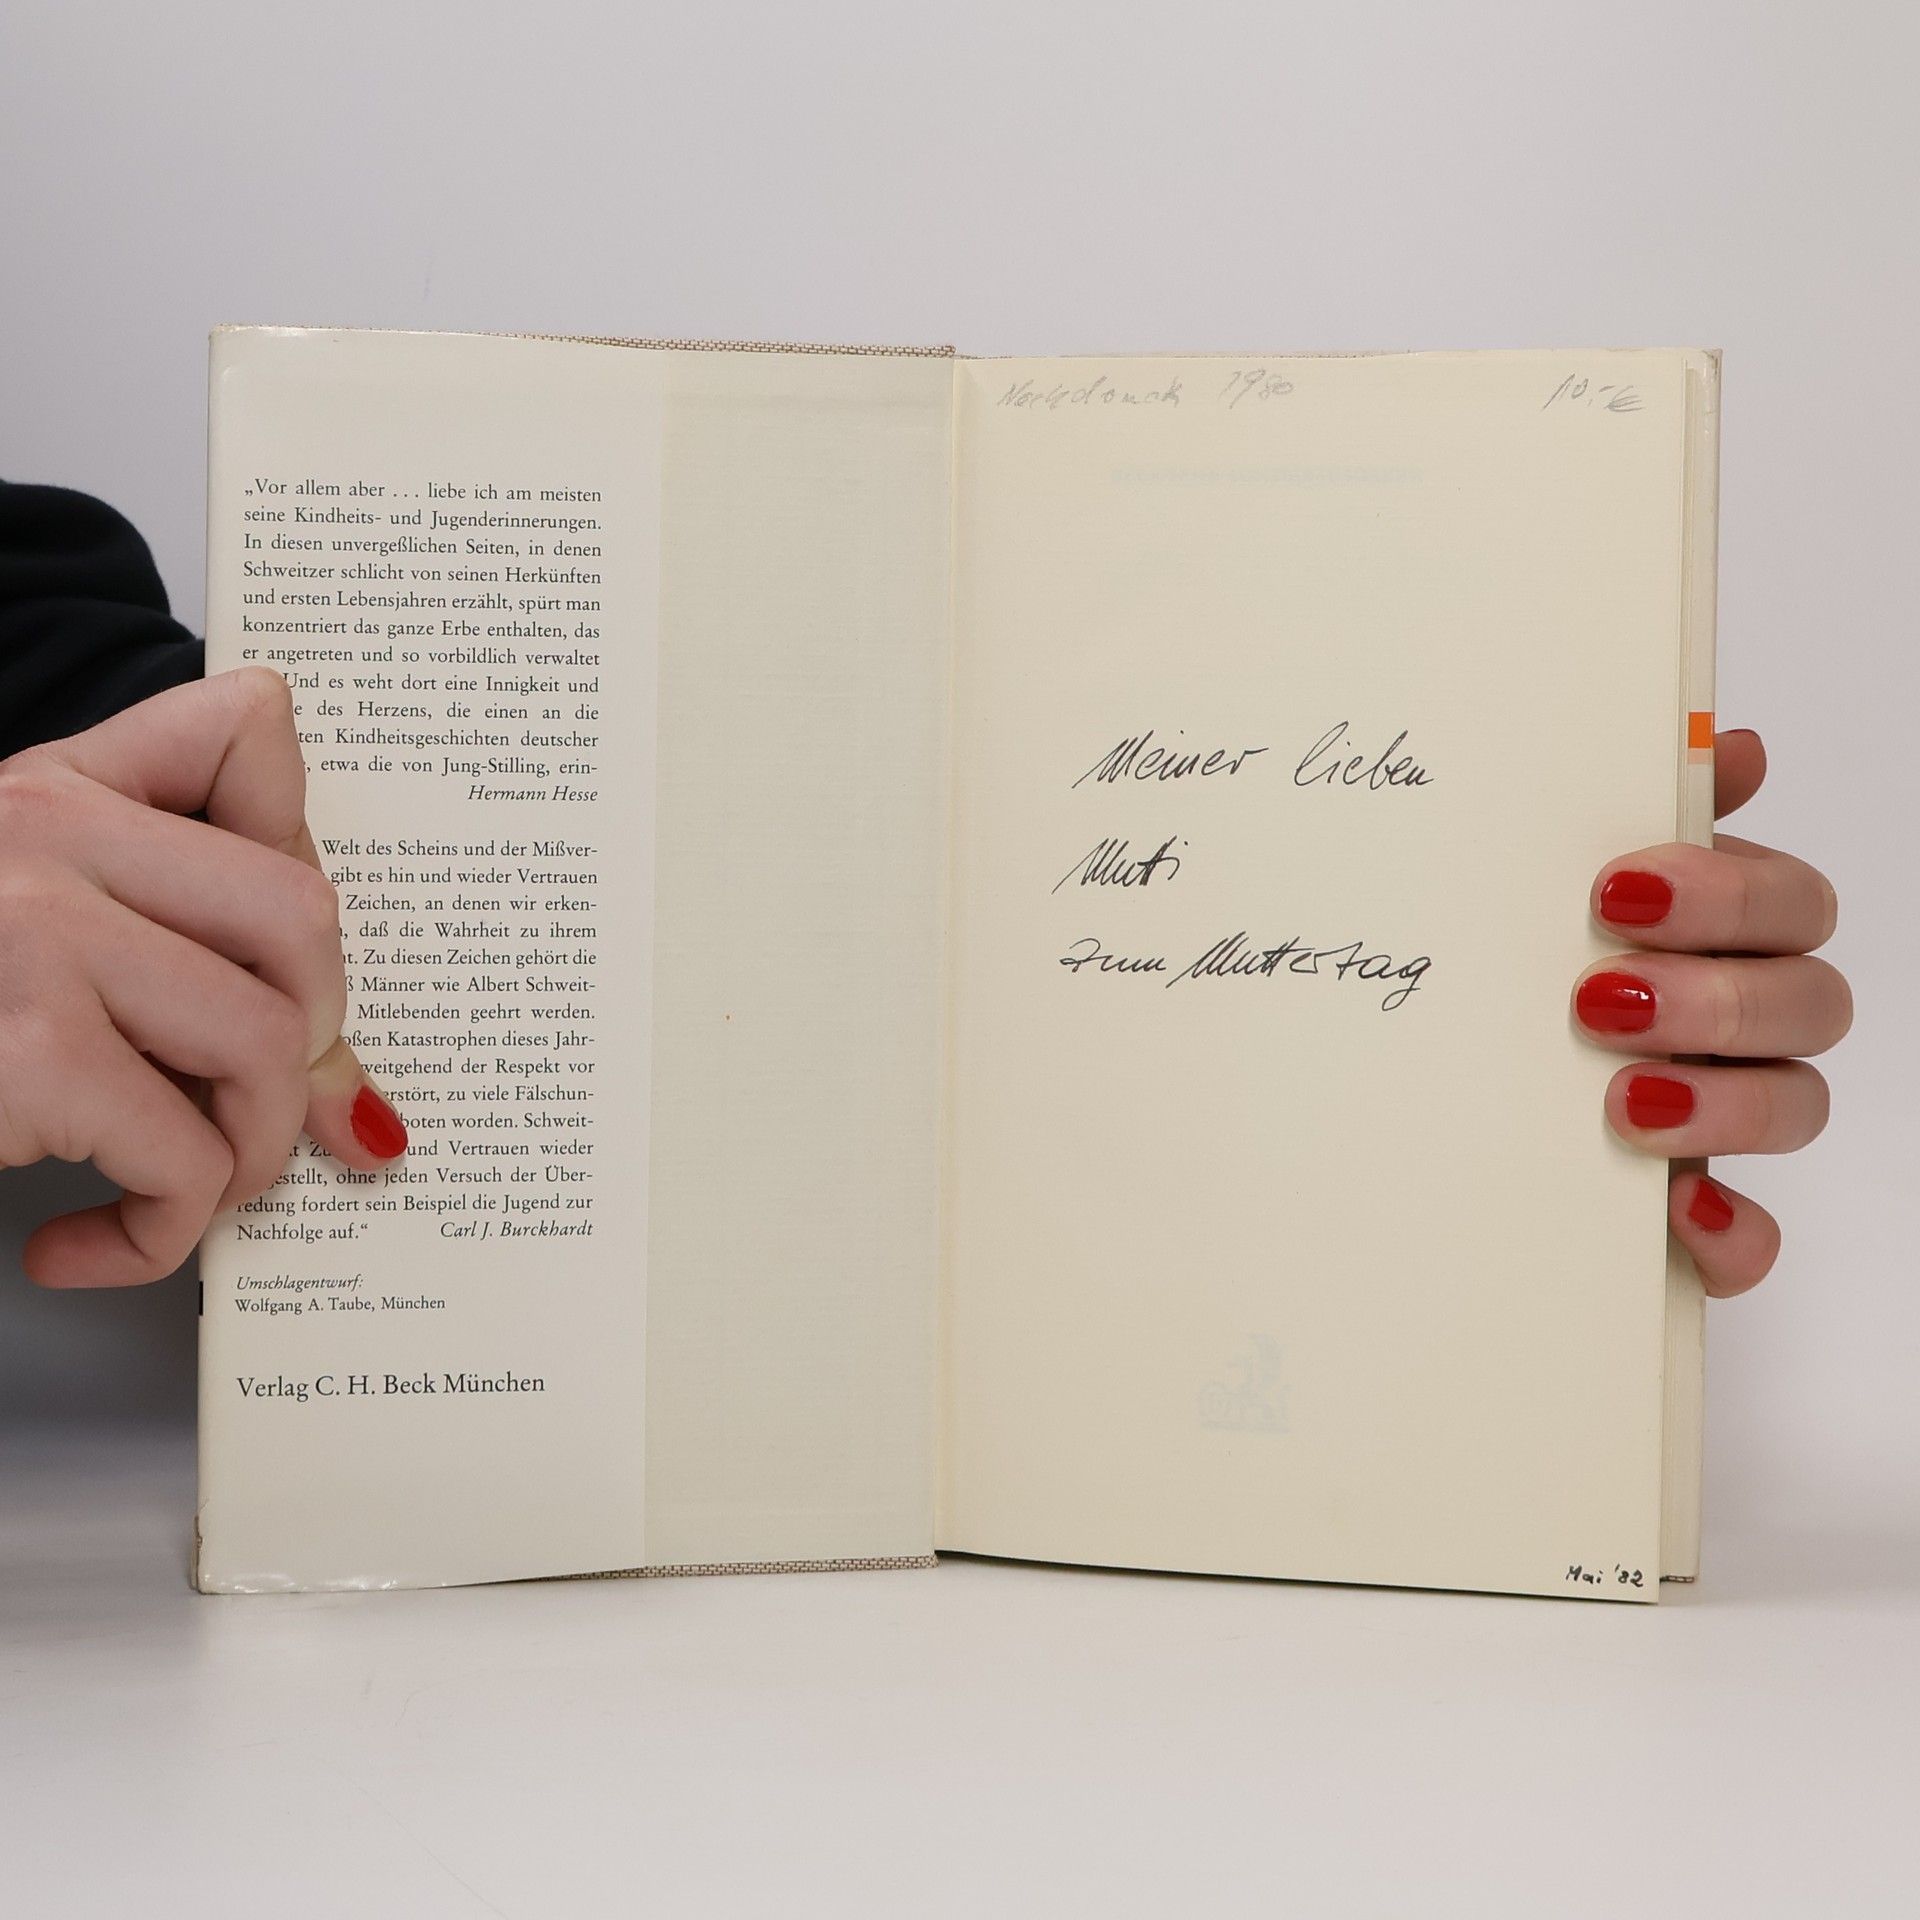 „Vor allem aber . . . liebe ich am meisten
seine Kindheits- und Jugenderinnerungen.
In diesen unvergeßlichen Seiten, in denen
Schweitzer schlicht von seinen Herkünften
und ersten Lebensjahren erzählt, spürt man
konzentriert das ganze Erbe enthalten, das
er angetreten und so vorbildlich verwaltet
Und es weht dort eine Innigkeit und
des Herzens, die einen an die
Kindheitsgeschichten deutscher
etwa die von Jung-Stilling, erin-
Hermann Hesse
Welt des Scheins und der Mißver-
gibt es hin und wieder Vertrauen
Zeichen, an denen wir erken-
daß die Wahrheit zu ihrem
Zu diesen Zeichen gehört die
Männer wie Albert Schweit-
Mitlebenden geehrt werden.
Katastrophen dieses Jahr-
weitgehend der Respekt vor
zu viele Fälschun-
worden. Schweit-
und Vertrauen wieder
ohne jeden Versuch der Über-
redung fordert sein Beispiel die Jugend zur
Nachfolge auf.“ Carl J. Burckhardt
Umschlagentwurf:
Wolfgang A. Taube, München
Verlag C. H. Beck München
1980 10.-€
Meiner lieben
Mutti
zum Muttertag
Mai '82